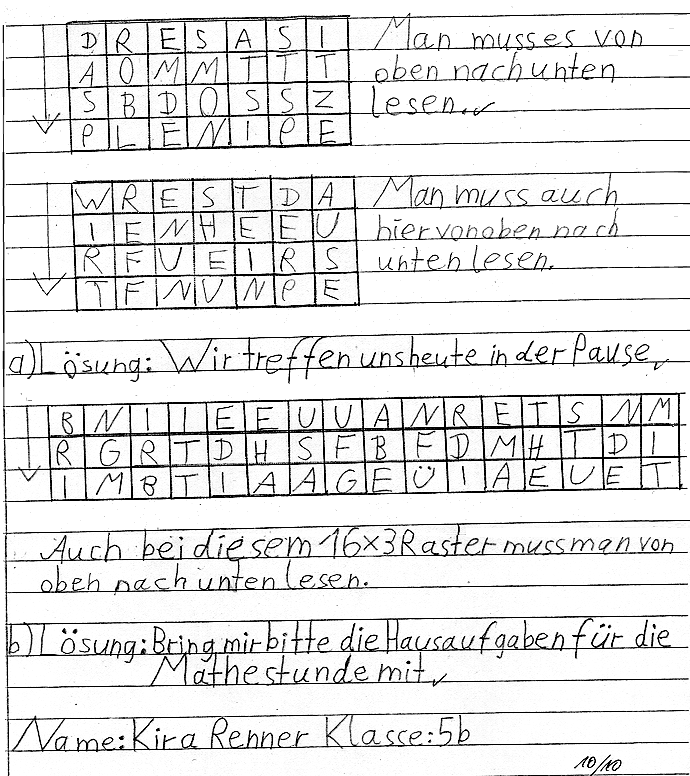 D R E S A S I
A O M M T T T
S B D O S S Z
P L E N I P E
Man musses von
oben nach unten
lesen.
W R E S T D A
I E N H E E U
R F U E I R S
T F N U N P E
Man muss auch
hier von oben nach
unten lesen.
a) Lösung: Wir treffen uns heute in der Pause
B N I I E E U U A N R E T S N M
R G R T D H S F B F D M H T D I
I M B T I A A G E Ü I A E U E T
Auch bei diesem 16×3 Raster muss man von
oben nach unten lesen.
b) Lösung: Bring mir bitte die Hausaufgaben für die
Mathestunde mit
Name: Kira Renner Klasse: 5b
10/10